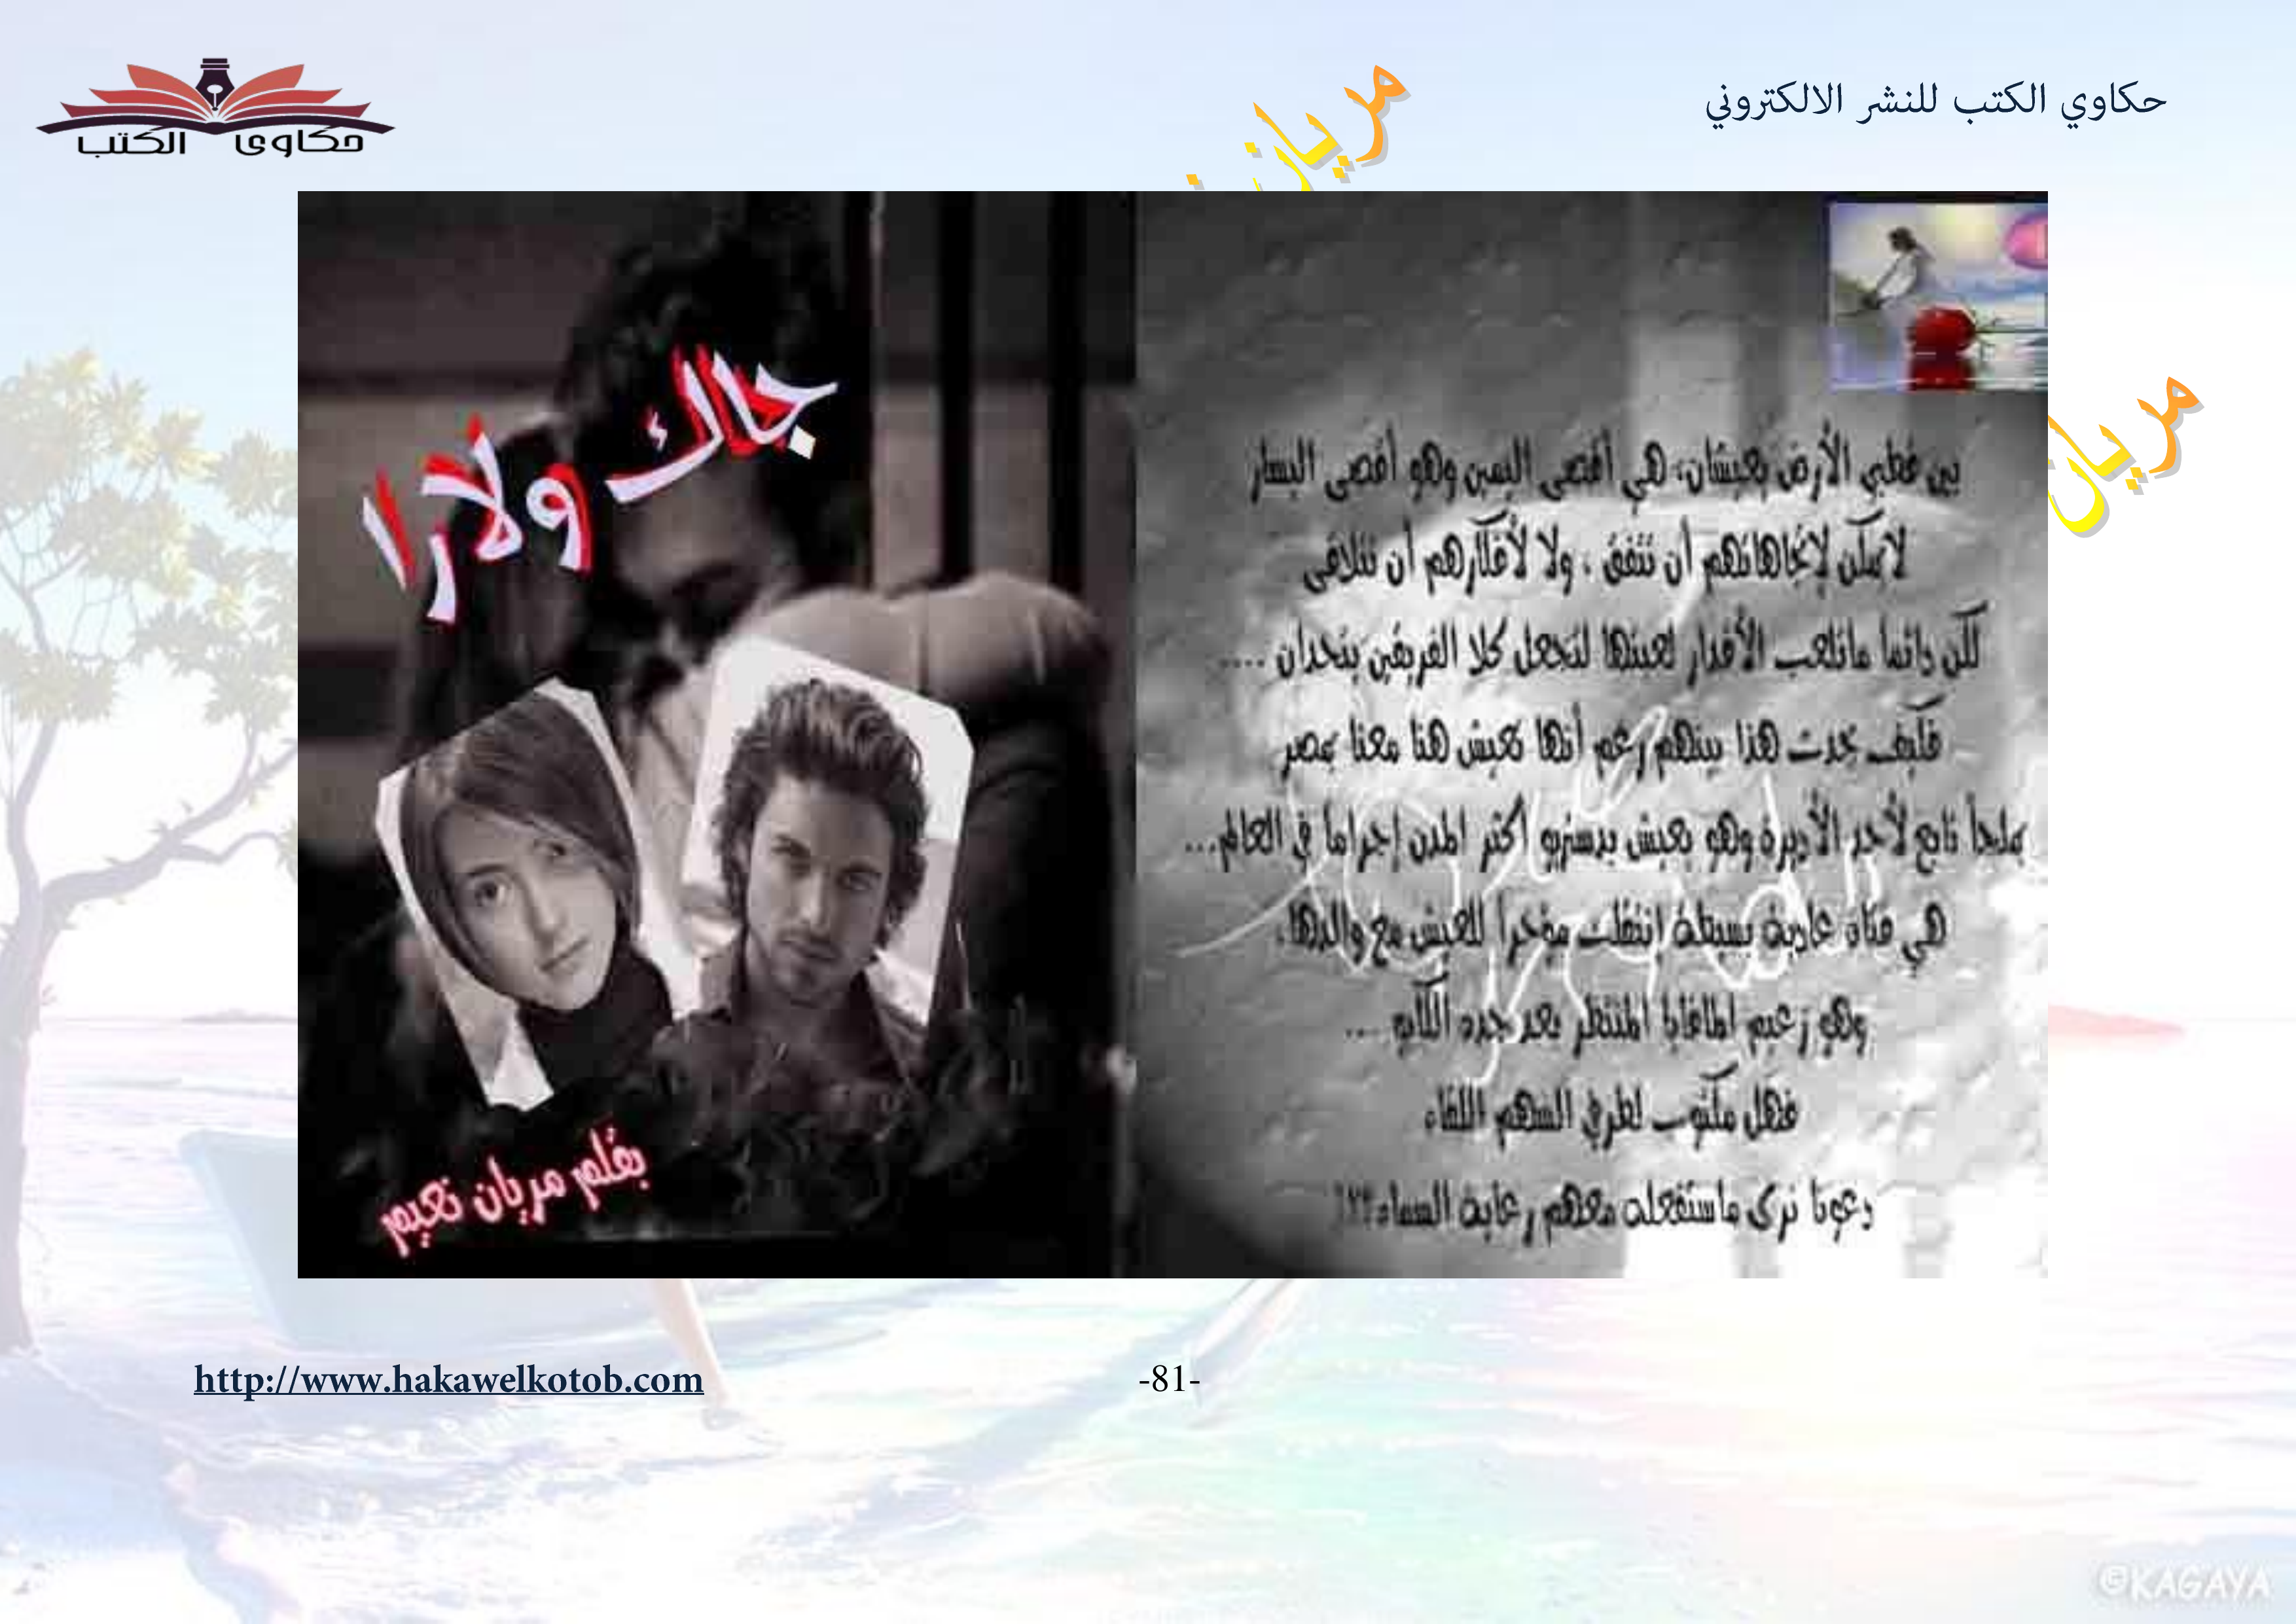 حكاوي الكتب للنشر الالكتروني
حكاوى الكتب
مريان
مريان
جاك ولارا
بقلم مريان نعيم
بين قطبي الأرض يعيشان، هي أقصى اليمين وهو أقصى اليسار
لايمكن لإتجاهاتهم أن تتفق ، ولا لأفكارهم أن تتلاقى
لكن دائما ماتلعب الأقدار لعبتها لتجعل كلا الفريقين يتحدان ....
فكيف يحدث هذا بينهم رغم أنها تعيش هنا معنا بمصر
بملجأ تابع لأحد الأديرة وهو يعيش بديستريو أكثر المدن إجراماً في العالم...
هي فتاة عادية بسيطة إنتقلت مؤخراً للعيش مع والدها،
وهو زعيم المافايا المنتظر بعد جده الكابو ....
فهل مكتوب لطرفي السهم اللقاء
دعونا نرى ماستفعله معهم رعاية السماء؟؟!
http://www.hakawelkotob.com
-81-
©KAGAYA